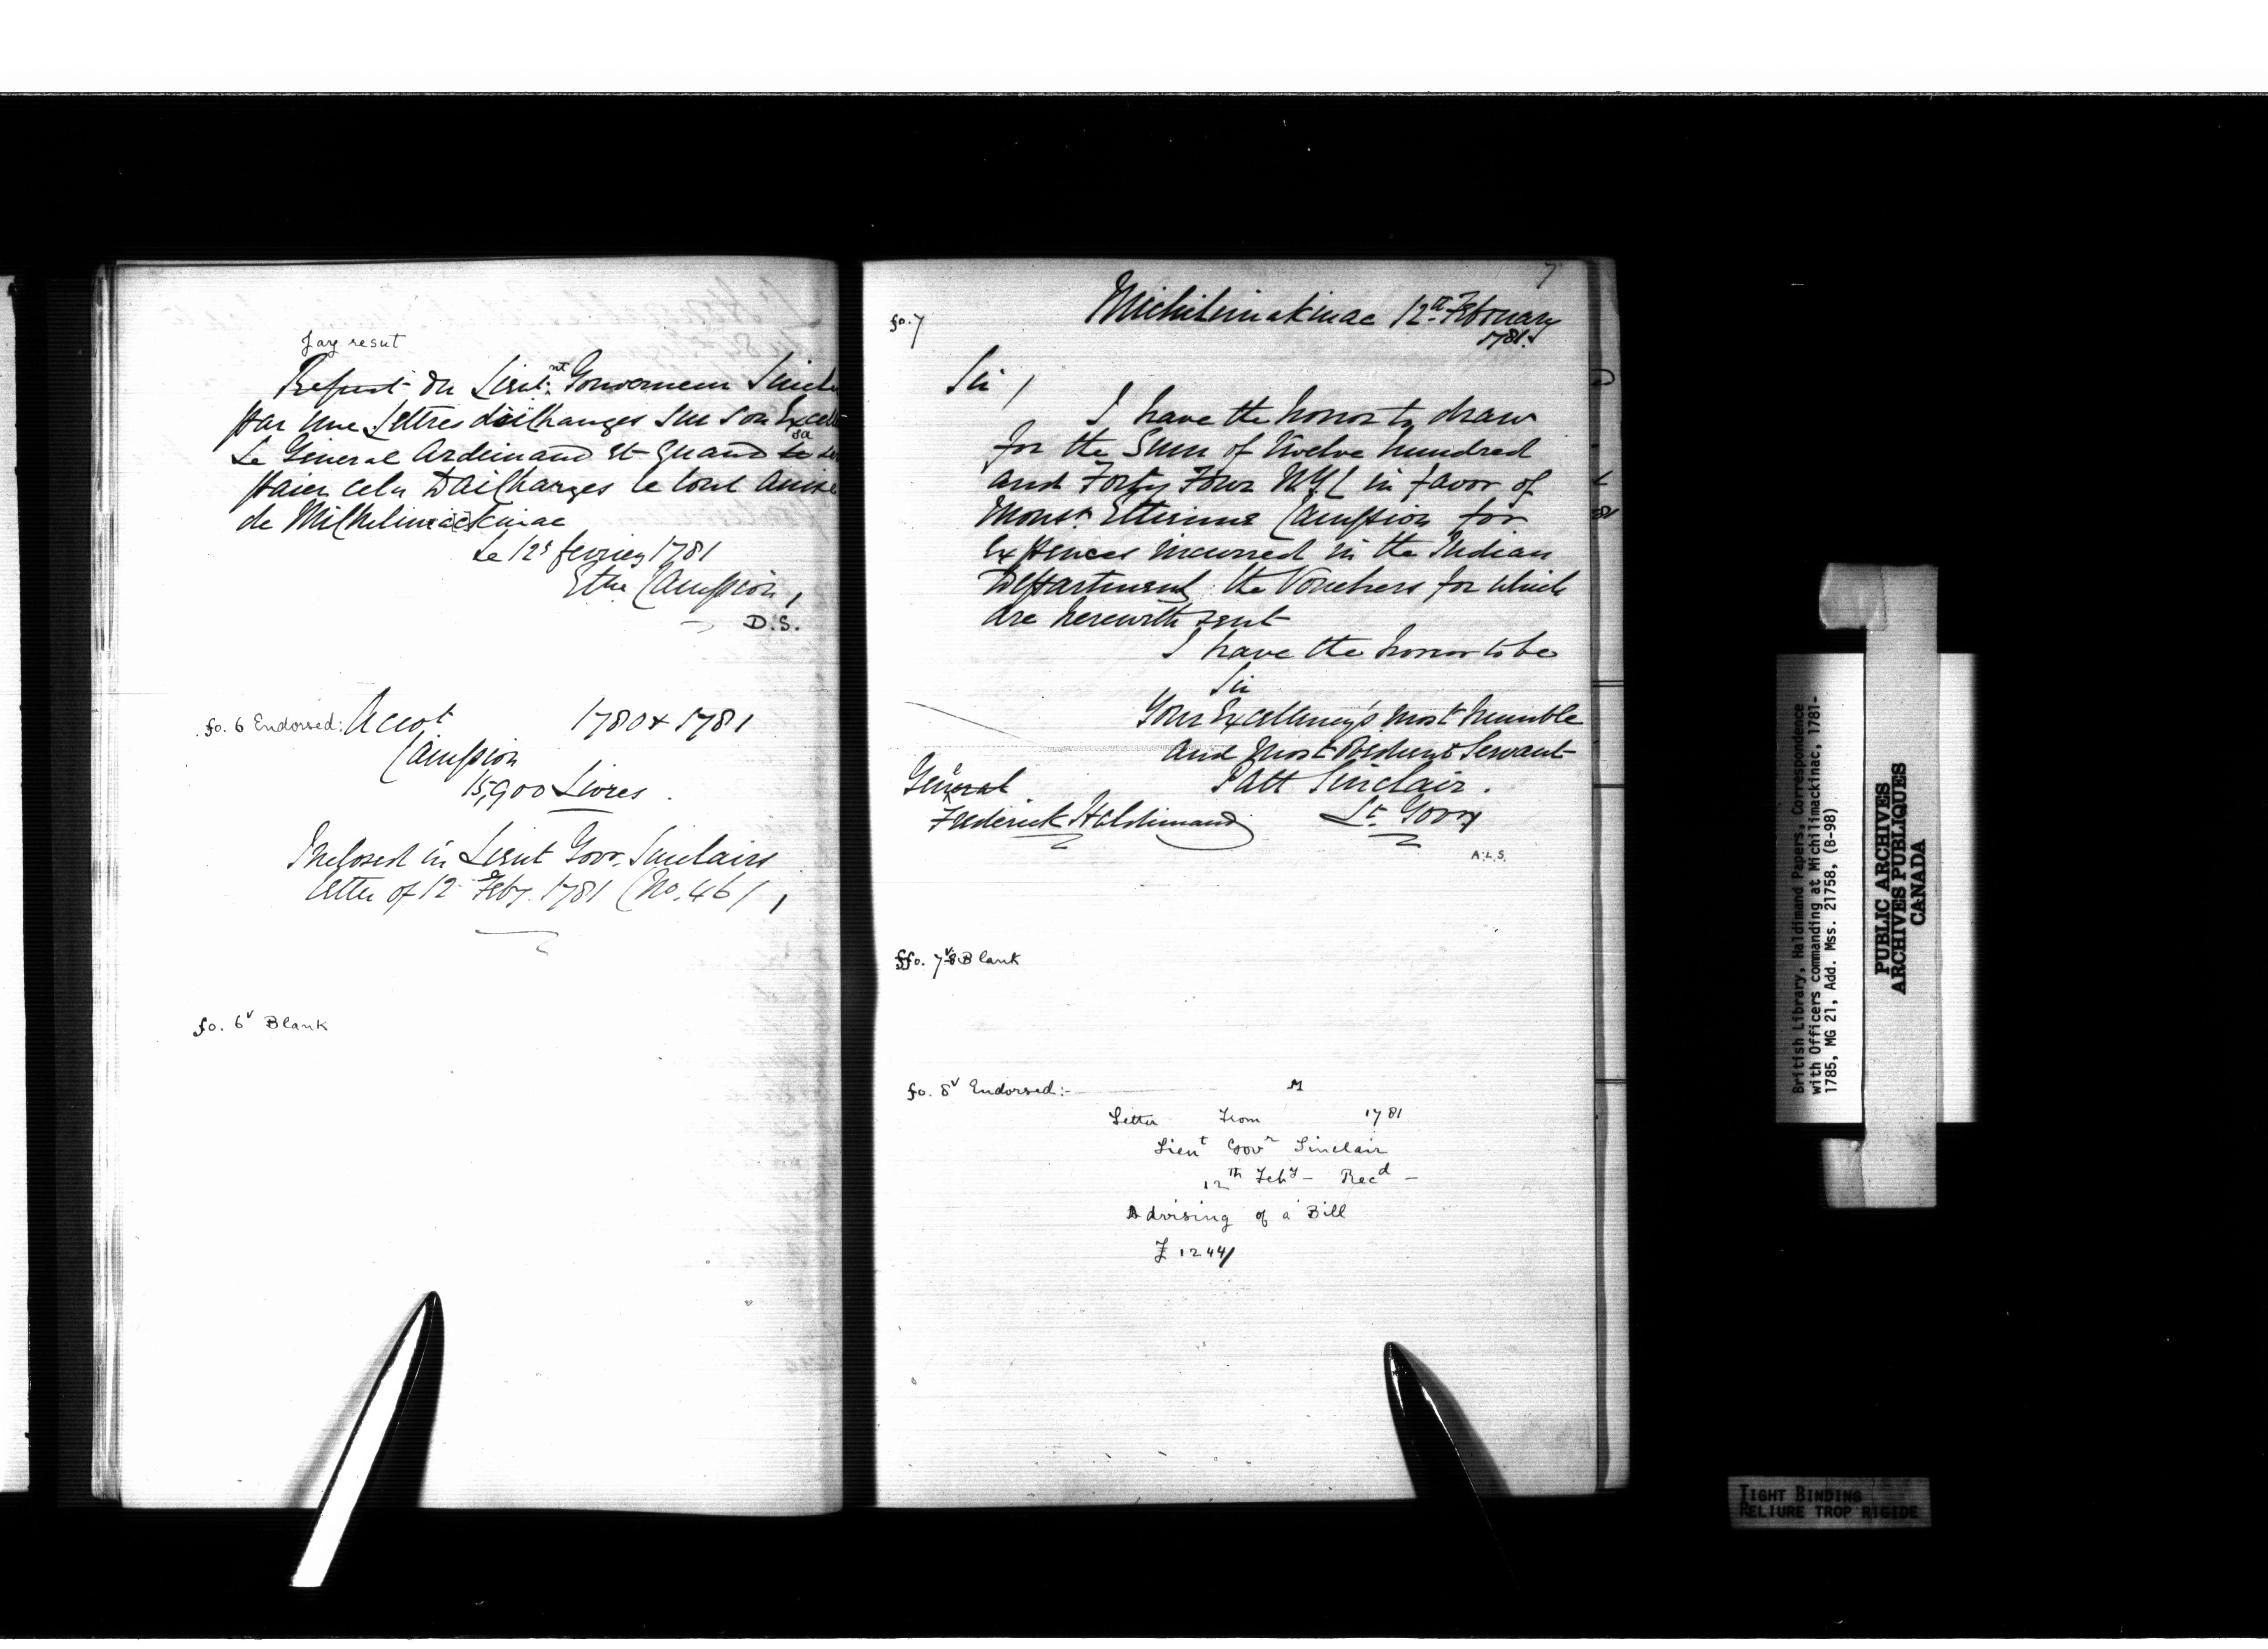 Jay resut
Refut du Lieut.nt Gouverneur Sincl
par une Lettres daiChanges sur son Excell
Le General Ardimand et quand te sa
paier celu DaiChanges le tout Anise
de Milhelimackinac
Le 12s fevriey 1781
Etne Campion,
D.S.
fo. 6 Endorsed: Accot 1780 & 1781
Campion
15,900 Livres.
Inclosed in Lieut Govr. Sinclairs
letter of 12 Feby. 1781 (No. 46),
fo. 6v Blank
7
fo. 7
Michilimakinac 12th February
1781.
Sir,
I have the honor to draw
for the Sum of twelve hundred
and Forty Four N.Y.C in favor of
Monsr. Ettienne Campion for
Expences incurred in the Indian
Department, the Vouchers for which
are herewith sent
I have the honor to be
Sir
Your Excellency's most humble
and most Obedient Servant
Patt Sinclair.
General
Frederick Haldimand
Lt. Govr
A.L.S.
ffo. 7v-8 Blank
fo. 8v Endorsed:- M
Letter From 1781
Lieut Govr Sinclair
12th Feby - Recd -
Advising of a Bill
£ 1244/
British Library, Haldimand Papers, Correspondence
with Officers commanding at Michilimackinac, 1781-
1785, MG 21, Add. Mss. 21758, (B-98)
PUBLIC ARCHIVES
ARCHIVES PUBLIQUES
CANADA
TIGHT BINDING
RELIURE TROP RIGIDE